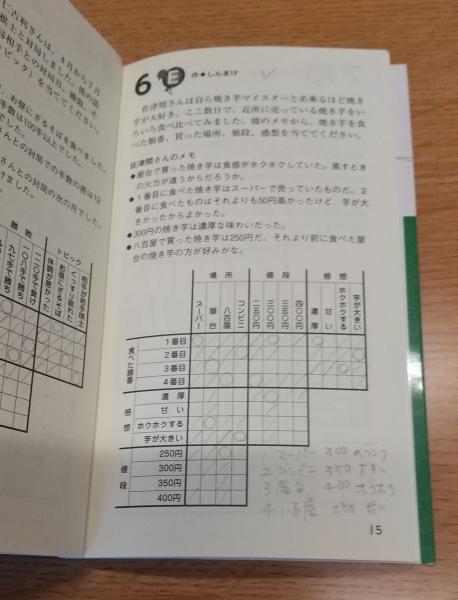 仁吉利さんは、4月から7月
棋士と対局しました。彼の話
局相手との対局月、勝敗、そ
ピック）を当ててください。
、お昼にざるそばを食べました。
手数は100手以上でした。
さんとの対局での手数の差は12
さんとの対局の次の月でした。
けました。
勝敗
トピック
一二〇手で負け
一〇八手で勝ち
九七手で勝ち
相手が若手棋士
ぐっすり眠れた
お昼にざるそば
体調が悪かった
6 E 作●しんまけ
佐津間さんは自ら焼き芋マイスターと名乗るほど焼き
芋が大好き。ここ数日で、近所に売っている焼き芋をい
ろいろ食べ比べてみました。彼のメモから、焼き芋を食
べた順番、買った場所、値段、感想を当ててください。
佐津間さんのメモ
●屋台で買った焼き芋は食感がホクホクしていた。蒸すとき
の火力が違うからだろうか。
●1番目に食べた焼き芋はスーパーで売っていたものだ。2
番目に食べたものはそれよりも50円高かったけど、芋が大
きかったからよかった。
●300円の焼き芋は濃厚な味わいだった。
●八百屋で買った焼き芋は250円だ。それより前に食べた屋
台の焼き芋の方が好みかな。
場所 値段 感想
スーパー 屋台 八百屋 コンビニ 二五〇円 三〇〇円 三五〇円 四〇〇円 濃厚 甘い ホクホクする 芋が大きい
食べた順番
1番目
2番目
3番目
4番目
感想
濃厚
甘い
ホクホクする
芋が大きい
値段
250円
300円
350円
400円
1 スーパー 300 のうこう
2 コンビニ 350 大きい
3 屋台 400 ホクホク
4 八百屋 250 甘い
15